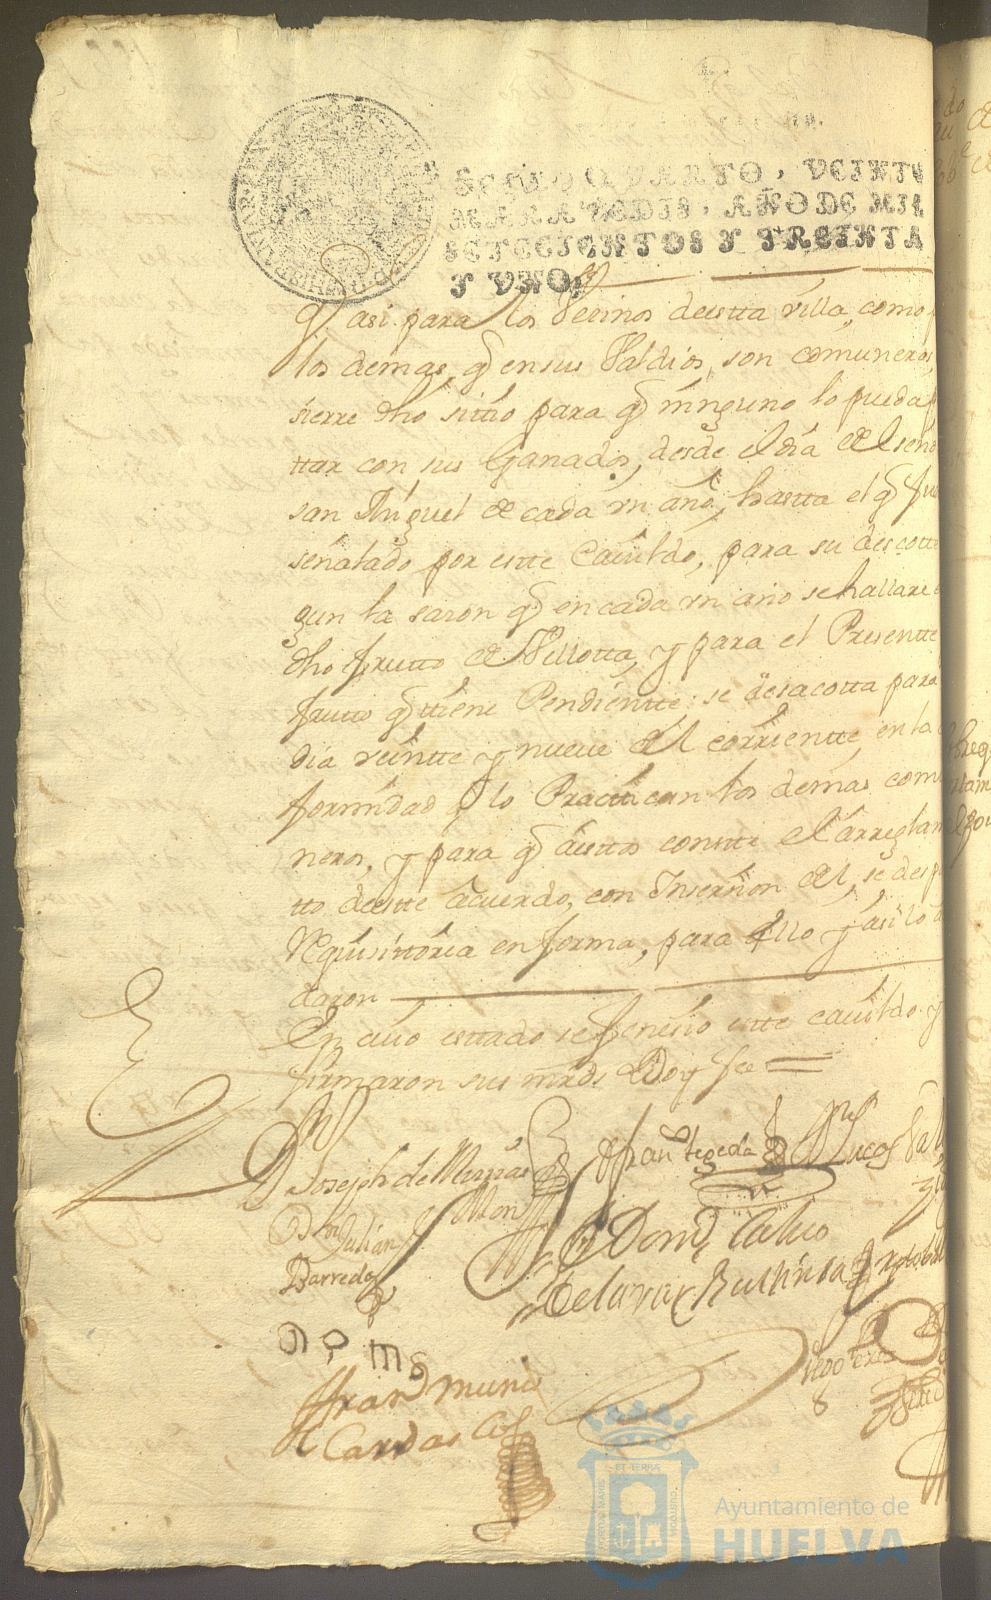 SELLO QVARTO, VEINTE
MARAVEDIS, AÑO DE MIL
SETECIENTOS Y TREINTA
Y VNO,
q̃ asi para los Vecinos deestta villa, como
los demas, q̃ en sus Valdios, son comuneros,
sierre dho sittio para q̃ ninguno lo pueda
ttar con sus Ganados, desde el dia del seño
san Miguel de cada un año, hastta el q̃ fue
señalado por estte Cavildo, para su descotte
gun la sazon q̃ en cada un año se hallare
dho frutto de Vellotta, y para el Presentte
frutto q̃ ttiene Pendientte se desacotta para
dia veintte y nueve del corrientte, en la
formidad q̃ lo Practtican los demas comu
neros, y para q̃ a esttos constte el arreglam
tto destte acuerdo, con Inserzion del, se desp
Requisittoria en forma, para ello y asi lo a
daron
En cuio esttado se fenesio estte cavildo y
firmaron sus mrds Doy fee
Joseph de
Fran Tegeda
Lucas
Dn Julian
Barreda
Domº Calvo
de la
Fran Muniz
Cardas
Diego
ET TERRÆ
PORTUS MARIS
CUSTODIA
Ayuntamiento de
HUELVA